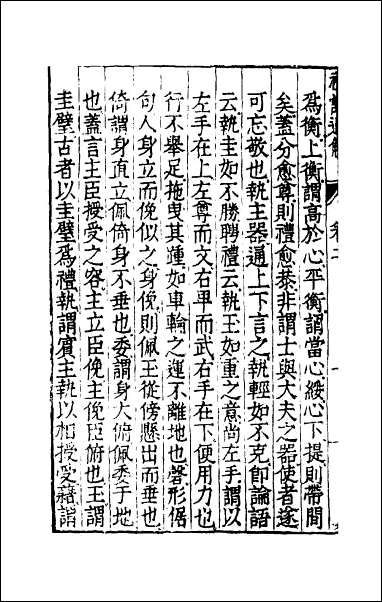 爲衡上衡謂高於心平衡謂當心綏心下提則帶間
矣蓋分愈尊則禮愈恭非謂士與大夫之器使者遂
可忘敬也執主器通上下言之執輕如不克卽論語
云執圭如不勝聘禮云執玉如重之意尚左手謂以
左手在上左尊而文右卑而武右手在下便用力也
行不舉足拖曳其踵如車輪之運不離地也磬形倨
句人身立而俛似之身俛則佩玉從傍懸出而垂也
倚謂身直立佩倚身不垂也委謂身大俯佩委于地
也蓋言主臣授受之容主立臣俛主俛臣俯也玉謂
圭璧古者以圭璧爲禮執謂賓主執以相授受藉謂